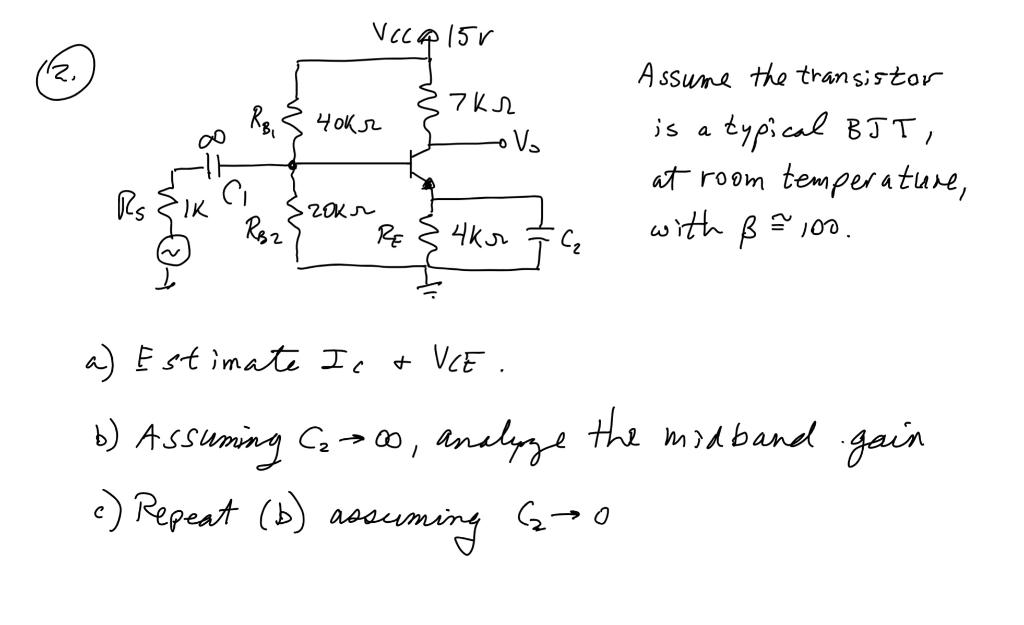 2.
VCC 15V
7KΩ
RB1 40KΩ
∞
Vo
C1
RS 1K
20KΩ
RB2
RE 4KΩ C2
Assume the transistor
is a typical BJT,
at room temperature,
with β ≅ 100.
a) Estimate Ic + VCE.
b) Assuming C2 → ∞, analyze the midband gain
c) Repeat (b) assuming C2 → 0